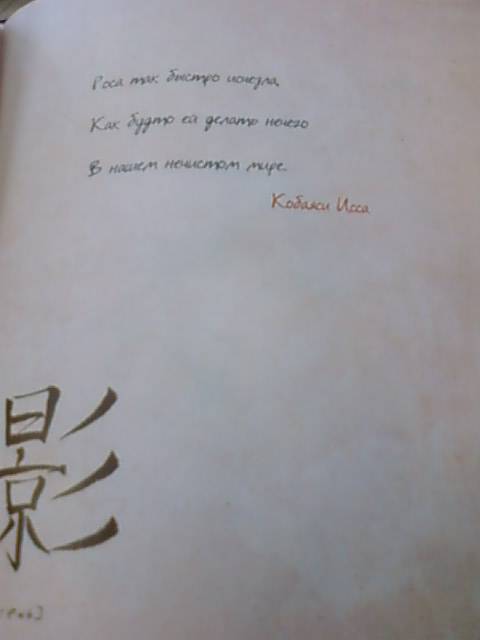 Роса так быстро исчезла,
Как будто ей делать нечего
В нашем нечистом мире.
Кобаяси Исса
影